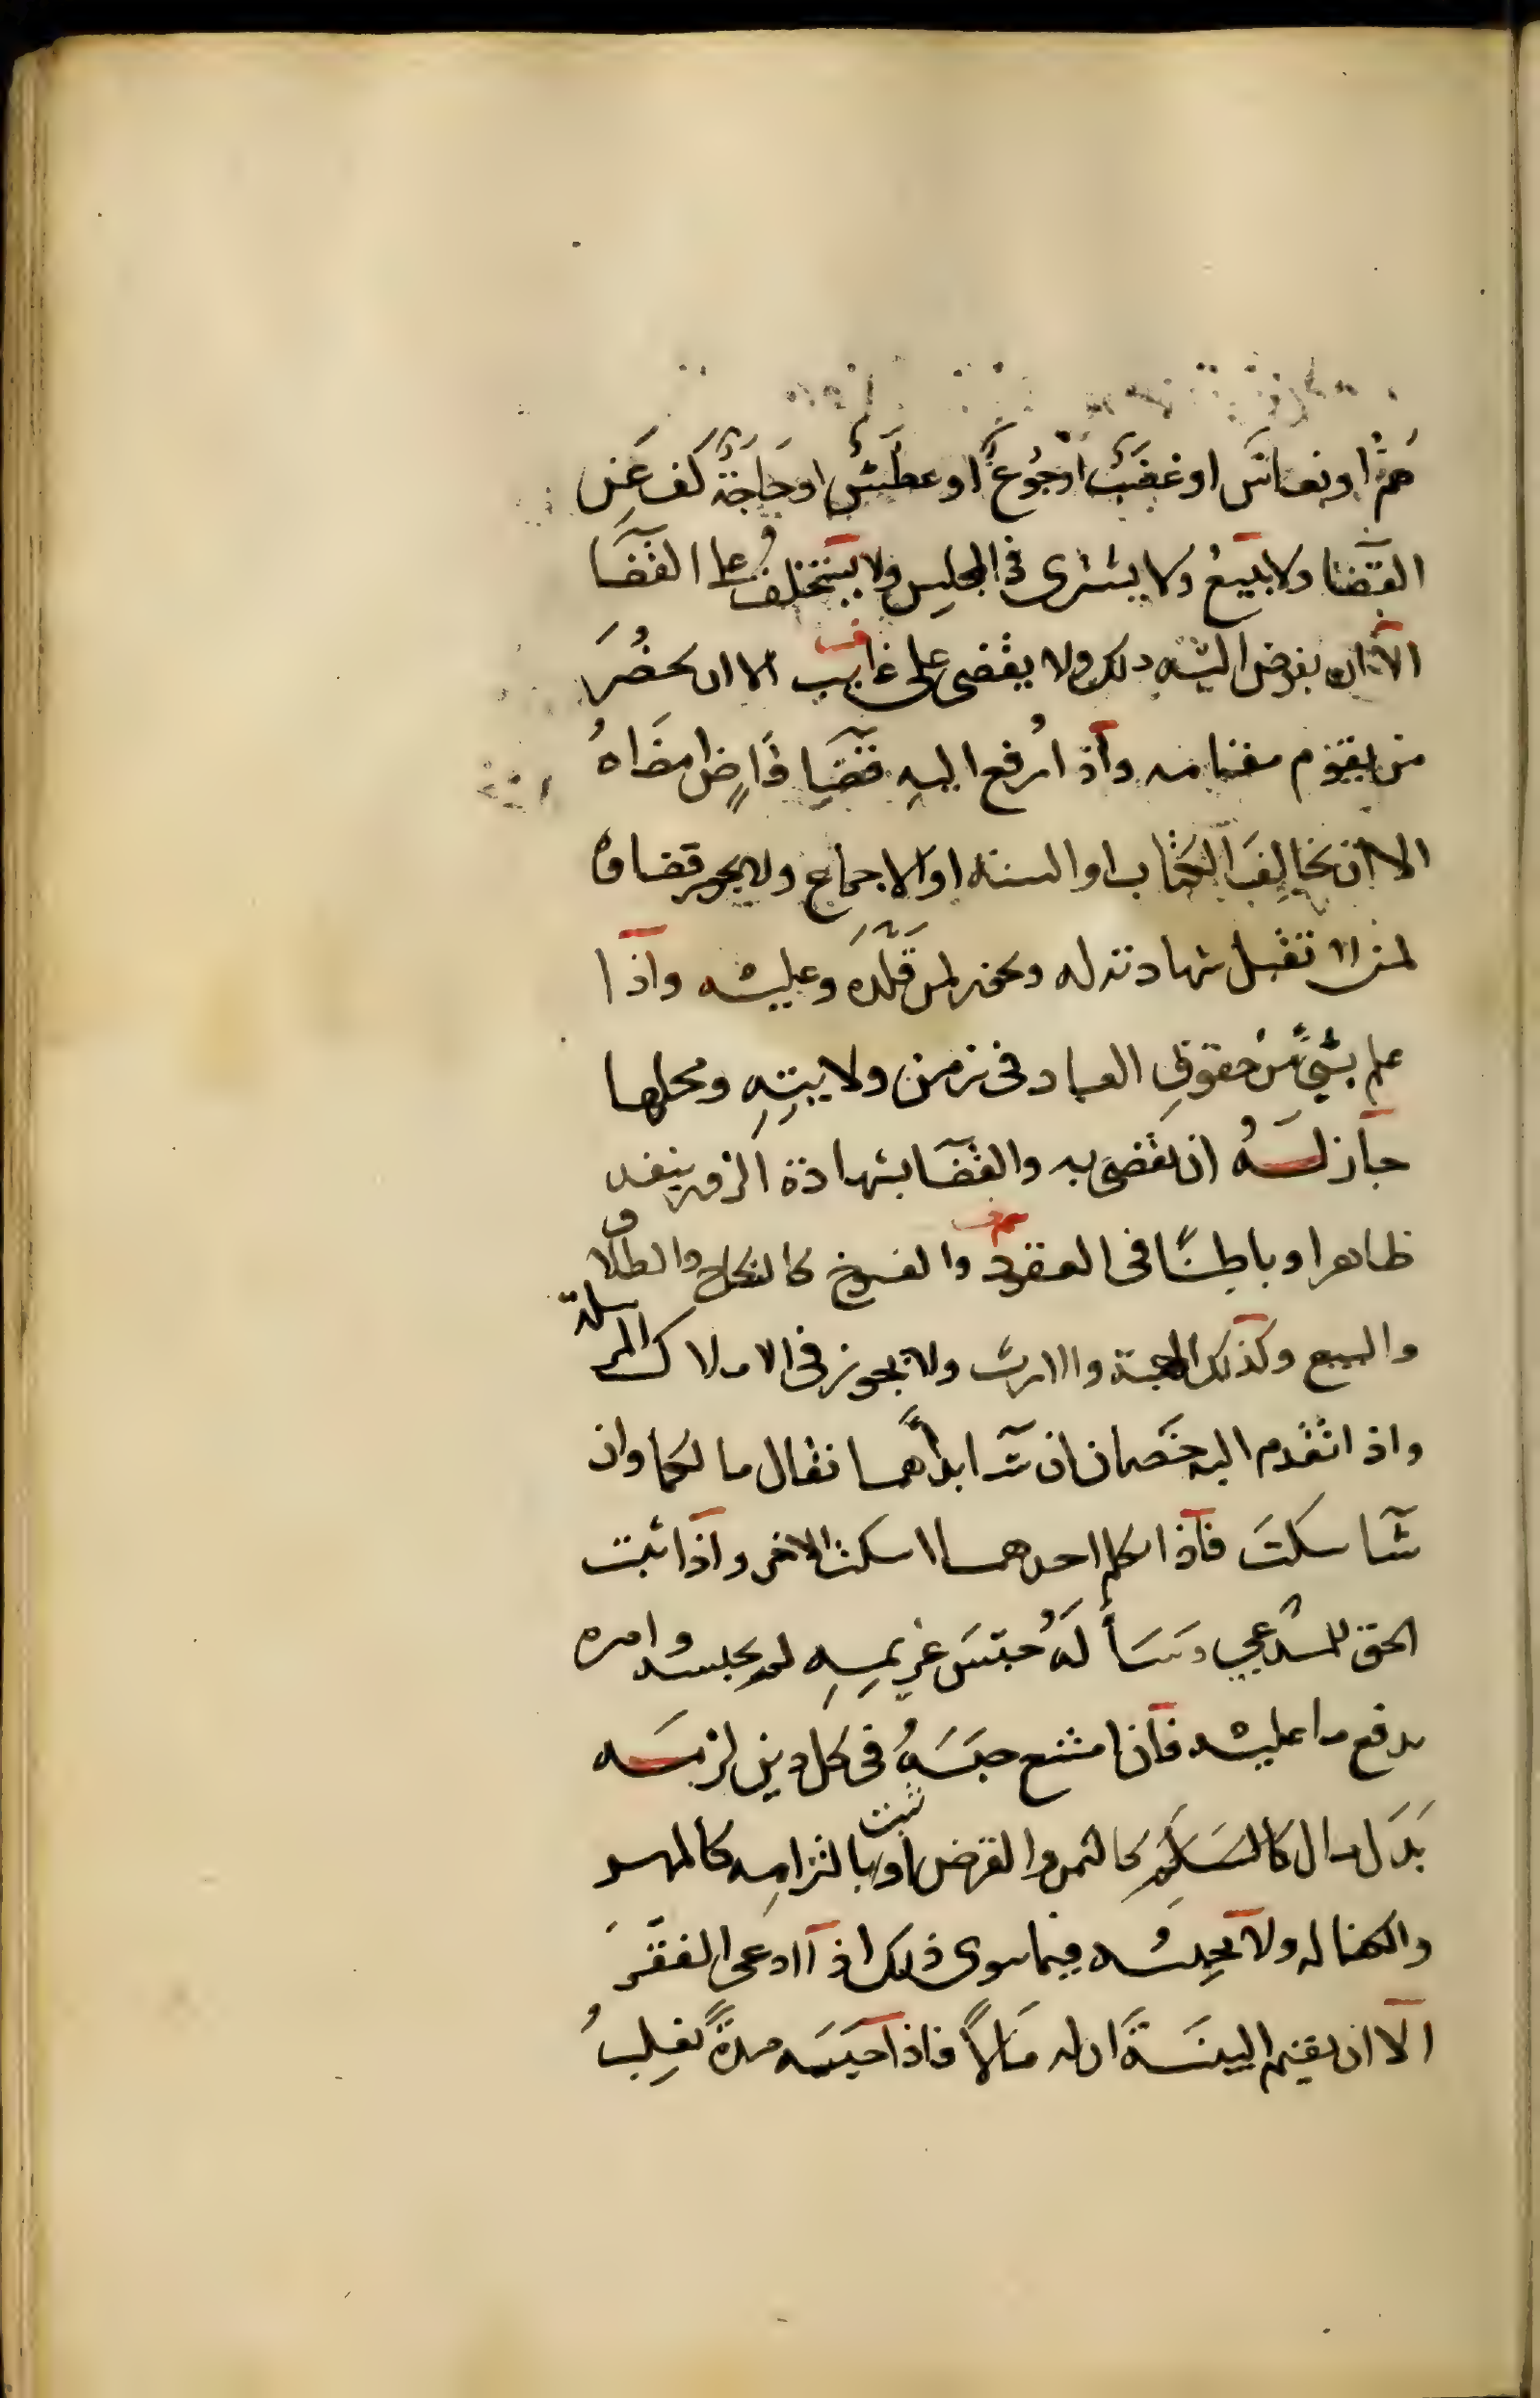 هَمٌّ او نعاسٌ او غضبٌ او جُوعٌ او عطشٌ او حَاجَةٌ كف عَن
القضآا ولا يبيعُ ولا يشترى فى المجلِس ولا يَستخلفُ على القضآ
الّا ان يفوض اليه ذلك ولا يقضى على غايب الا ان يحضُرَ
من يقوم مقامه واذا رُفع اليهِ قضآ قَاضٍ امضَاهُ
الا ان يخالِفَ الكتاب او السنة او الاجماع ولا يجوز قضاوه
لمن لا تقبل شهادته له ويجوز لمن قَلَّدَه وعليه واذا
علم بشىءٍ من حقوقِ العباد فى زمن ولايتِهِ ومحلها
جاز لَهُ ان يقضىَ به والقضآ بشهادة الزور ينفد
ظاهرا وباطنًا فى العقود والفسوخ كالنكاح والطلاق
والبيع وكذلك الهبة والارث ولا يجوز فى الاملاك المرسلة
واذا تقدم اليه خصمان ان شآ بدأهما فقال ما لكما وان
شآ سكتَ فاذا تكلم احدهما اسكت الاخر واذا ثبت
الحق للمدعي وسَأَلَهُ حبسَ غريمِهِ لم يحبسه وامره
بدفع ما عليه فان امتنع حبَسَهُ فى كل دين لزمَه
بَدَل مال كالسَلَمِ كالثمن والقرض او ثبت بالتزامِه كالمهر
والكفاله ولا يحبِسُه فيما سوى ذلك اذا ادعى الفقرَ
الّا ان يقيم البينَةَ ان له مَالاً فاذا حبسَه مدةً يغلِبُ